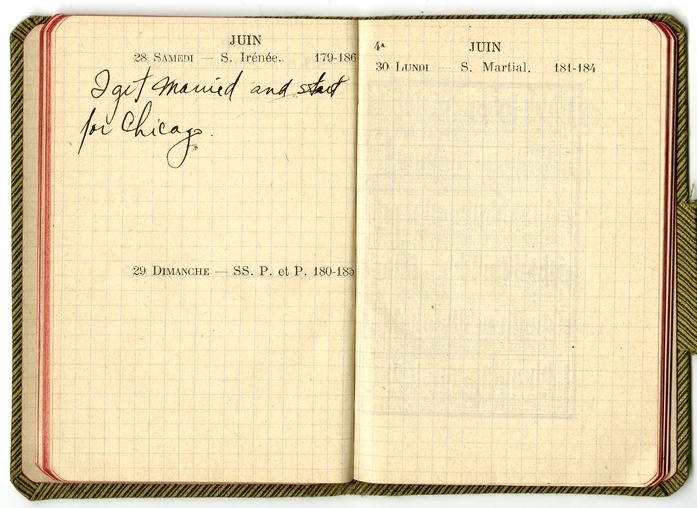 JUIN
28 SAMEDI — S. Irénée. 179-186
I get married and start
for Chicago.
29 DIMANCHE — SS. P. et P. 180-185
4ᴬ JUIN
30 LUNDI — S. Martial. 181-184